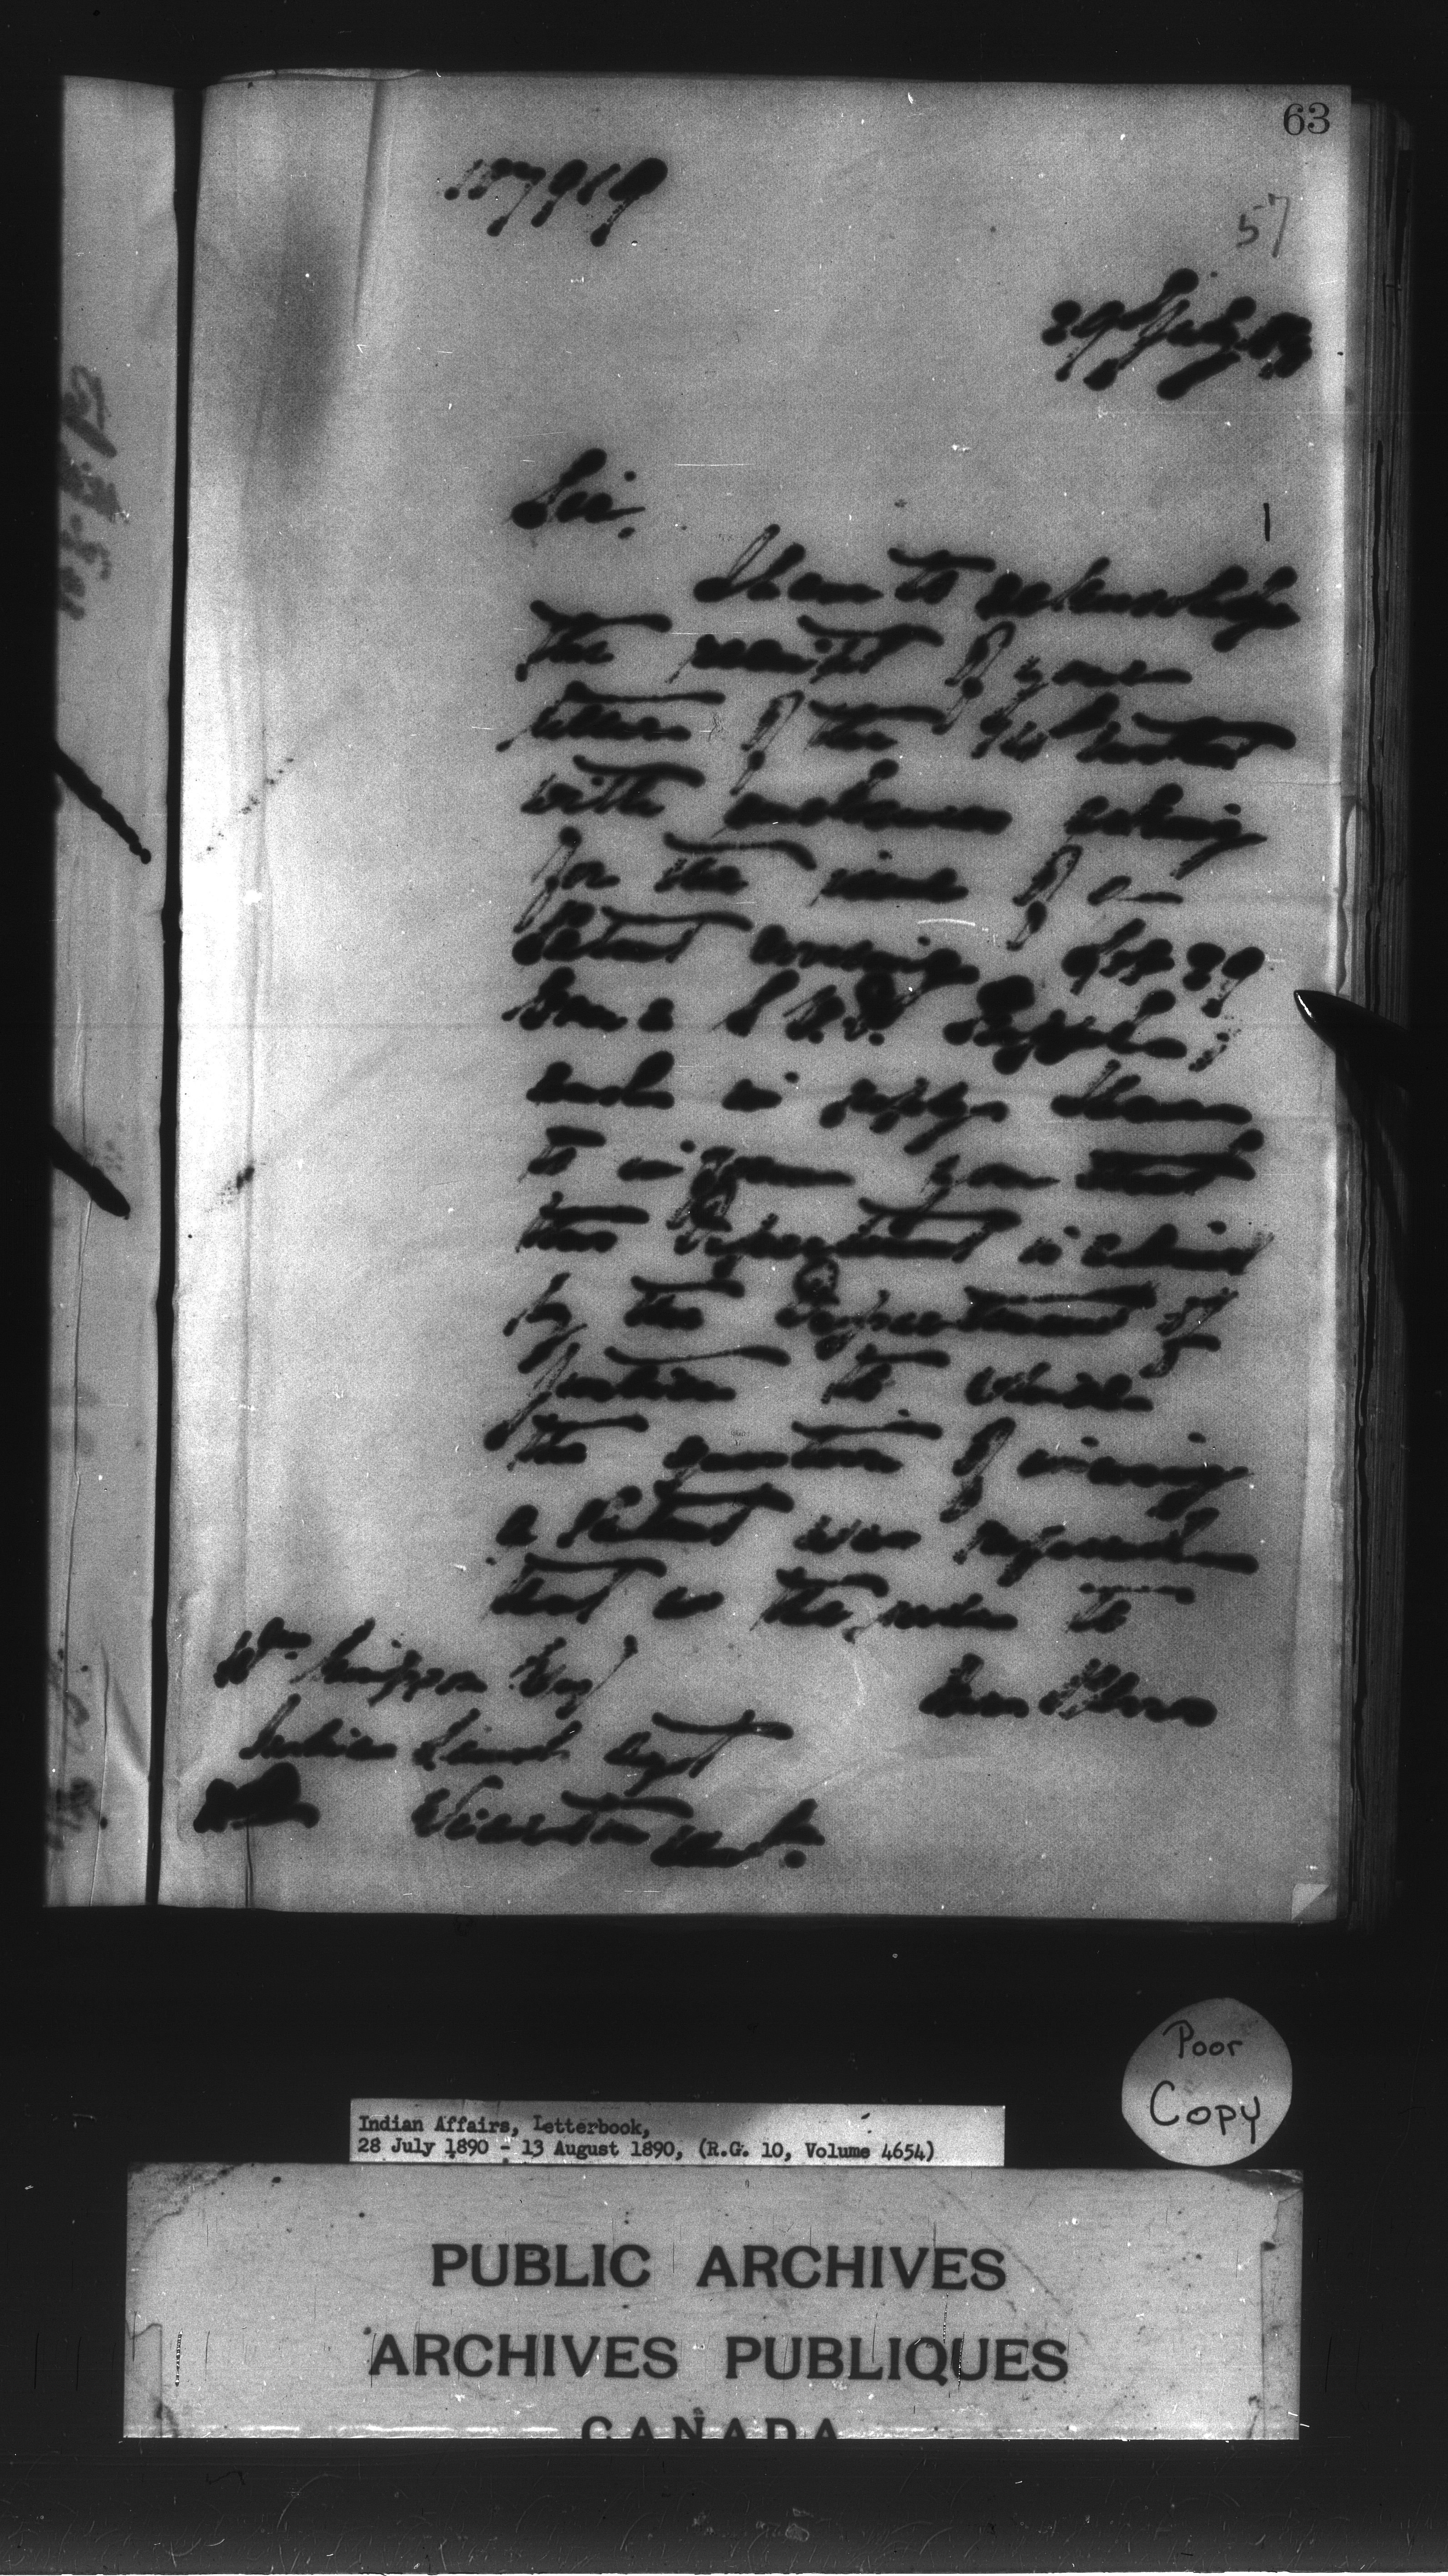 63
57
29 July
Sir,
I have to acknowledge
the receipt of your
letter of the
with enclosures asking
for the issue of a
patent covering Lot 29
Con 2
and in reply I have
to inform you that
the Department is advised
by the Department of
Justice to which
the question of issuing
a Patent was referred
that as the
Wm Simpson Esq
Indian Land Agt
Wiarton Ont.
Poor
Copy
Indian Affairs, Letterbook,
28 July 1890 - 13 August 1890, (R.G. 10, Volume 4654)
PUBLIC ARCHIVES
ARCHIVES PUBLIQUES
CANADA